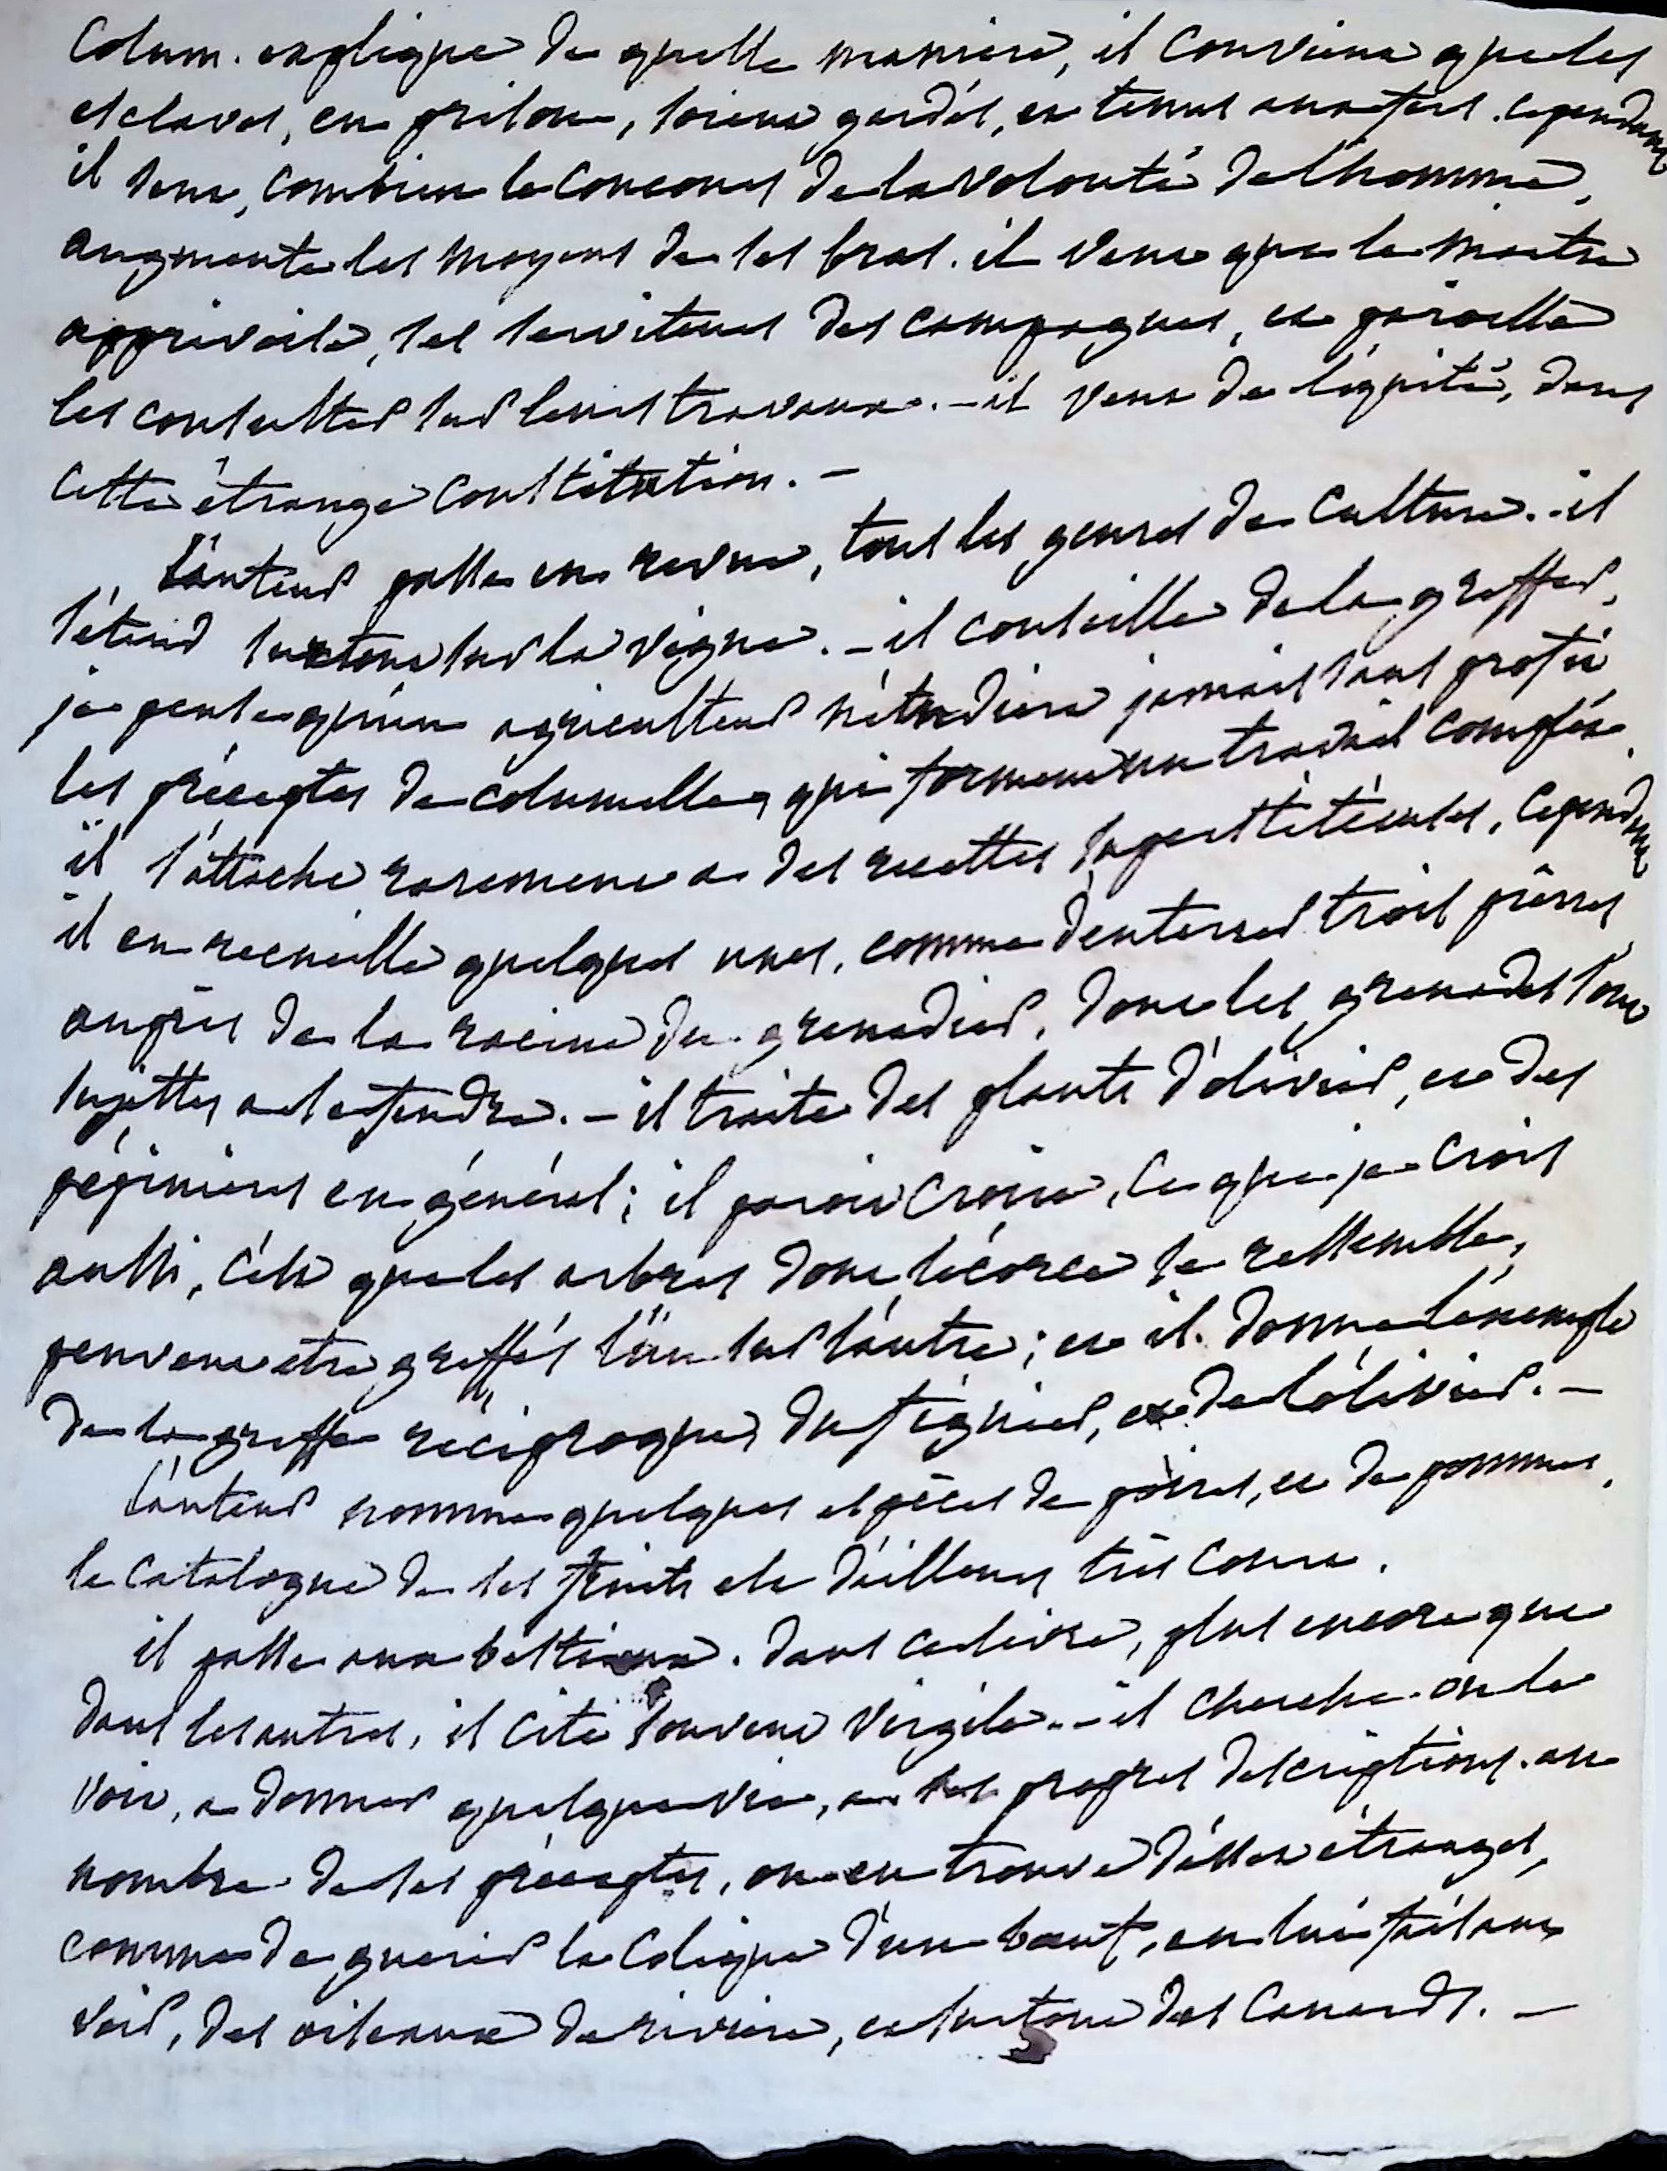 Colum. explique de quelle maniere, il convient que les
esclaves, en prison, soient gardés, et tenus aux fers. cependant
il sent, combien le concours de la volonté de l'homme,
augmente les moyens de ses bras. il veut que le maitre
apprivoise, les serviteurs des campagnes, et paroisse
les consulter sur leurs travaux. - il veut de l'équité, dans
cette étrange constitution. -
L'auteur passe en revue, tous les genres de culture. - il
s'étend surtout sur la vigne. - il conseille de la greffer,
je pense qu'un agriculteur n'étudiera jamais sans profit
les préceptes de columelle, qui forment un travail complet.
il s'attache rarement a des recettes superstitieuses, cependant
il en recueille quelques unes, comme d'enterrer trois pierres
auprès de la racine du grenadier, dont les grenades sont
sujettes a se fendre. - il traite des plants d'olivier, et des
pépinieres en général ; il paroit croire, ce que je crois
aussi, c'est que les arbres dont l'écorce se ressemble,
peuvent etre greffés l'un sur l'autre ; et il donne l'exemple
de la greffe réciproque, du figuier, et de l'olivier. -
L'auteur nomme quelques espèces de poires, et de pommes,
le catalogue de ses fruits est d'ailleurs très court.
il passe aux bestiaux. dans ce livre, plus encore que
dans les autres, il cite souvent Virgile. - il cherche on le
voit, a donner quelque vie, a ses propres descriptions. au
nombre de ses préceptes, on en trouve d'assés étranges,
comme de guerir la colique d'un bœuf, en lui faisant
voir, des oiseaux de riviere, et surtout des canards. -